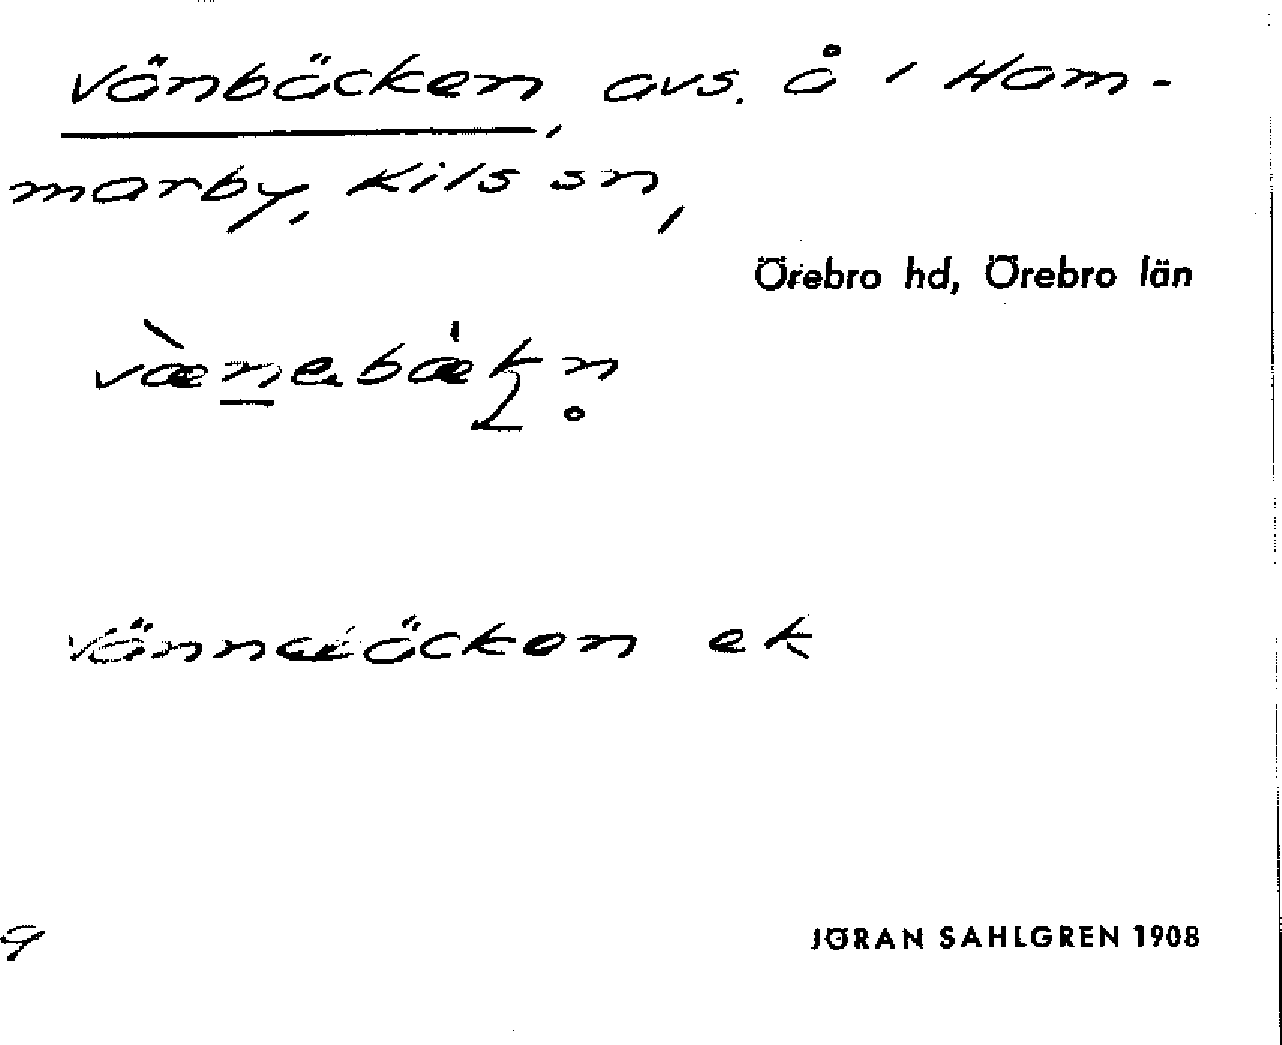 Vänbäcken, avs. å i Ham-
marby, Kils sn,
Örebro hd, Örebro län
væ̀nebækn̥
Vännebäcken ek
9
JÖRAN SAHLGREN 1908